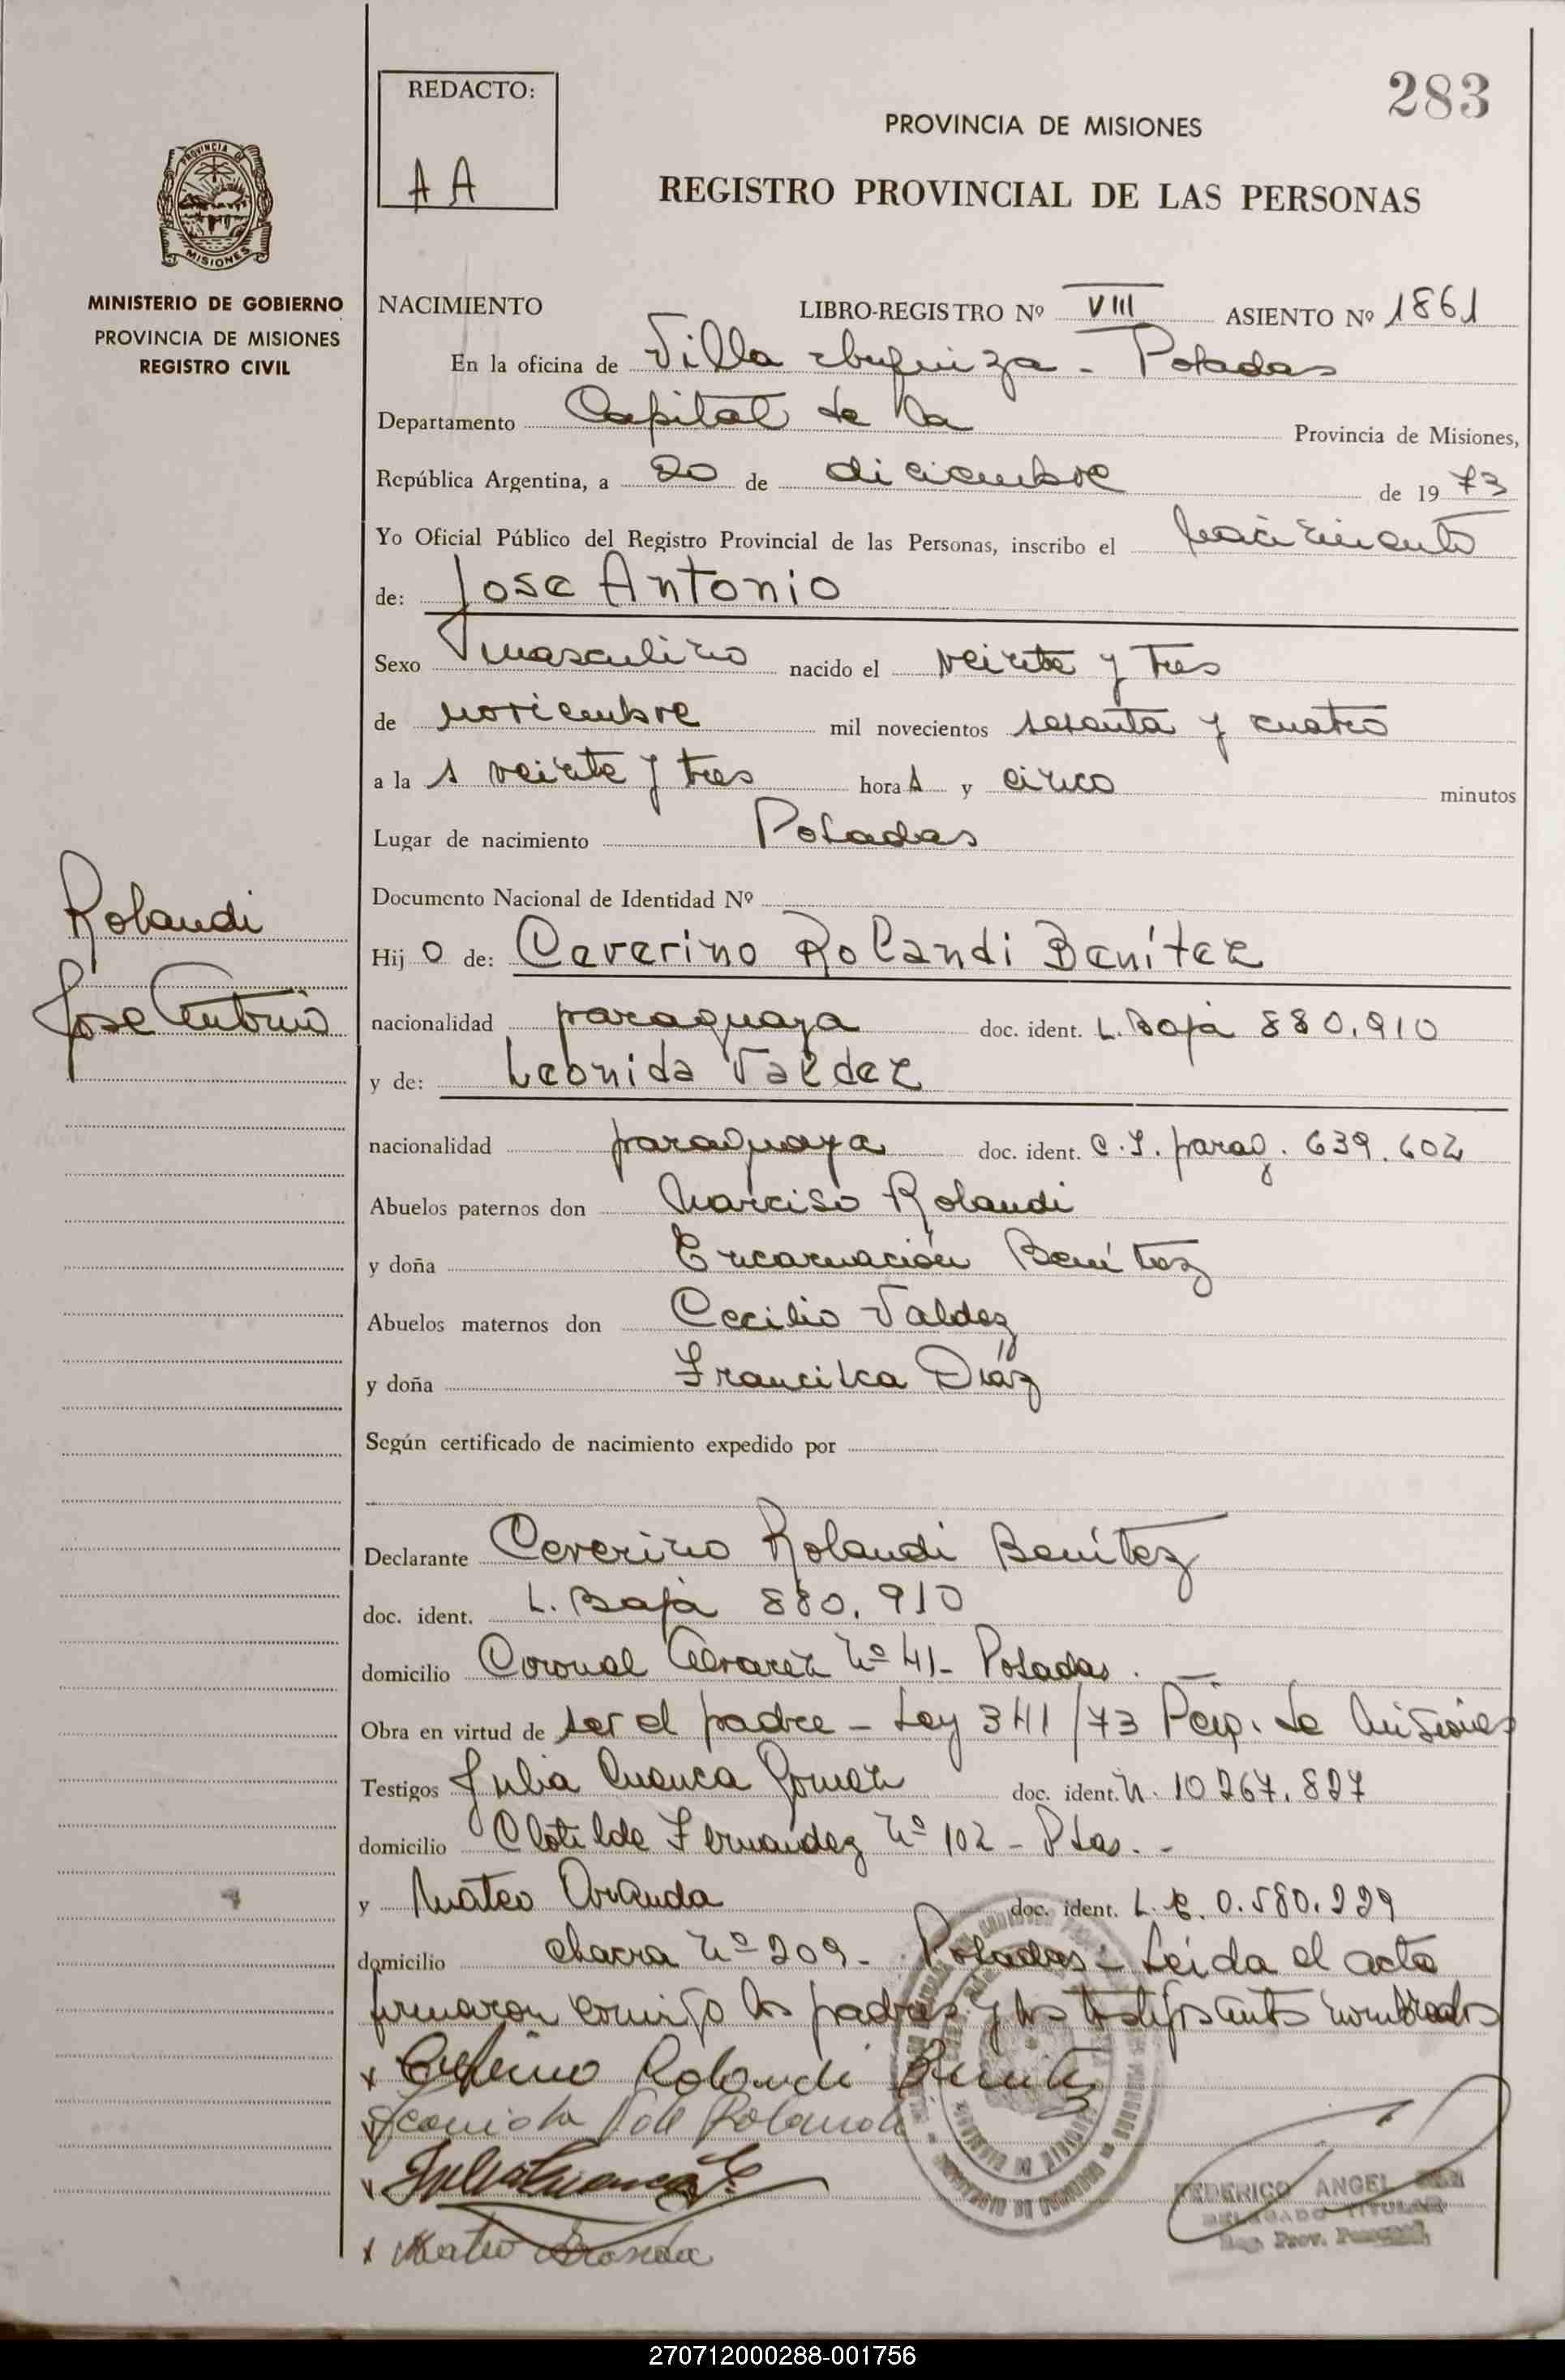 283
REDACTO:
AA
PROVINCIA DE MISIONES
REGISTRO PROVINCIAL DE LAS PERSONAS
PROVINCIA DE
MISIONES
MINISTERIO DE GOBIERNO
PROVINCIA DE MISIONES
REGISTRO CIVIL
NACIMIENTO LIBRO-REGISTRO Nº VIII ASIENTO Nº 1861
En la oficina de Villa Urquiza - Posadas
Departamento Capital de la Provincia de Misiones,
República Argentina, a 20 de diciembre de 1973
Yo Oficial Público del Registro Provincial de las Personas, inscribo el nacimiento
de: Jose Antonio
Sexo masculino nacido el veinte y tres
de noviembre mil novecientos sesenta y cuatro
a las veinte y tres horas y cinco minutos
Lugar de nacimiento Posadas
Documento Nacional de Identidad Nº
Rolandi
Jose Antonio
Hijo de: Ceverino Rolandi Benítez
nacionalidad paraguaya doc. ident. L. Baja 880.910
y de: Leonida Valdez
nacionalidad paraguaya doc. ident. C.I. parag. 639.602
Abuelos paternos don Narciso Rolandi
y doña Encarnación Benítez
Abuelos maternos don Cecilio Valdez
y doña Francisca Díaz
Según certificado de nacimiento expedido por
Declarante Ceverino Rolandi Benítez
doc. ident. L. Baja 880.910
domicilio Coronel Alvarez Nº 41- Posadas. —
Obra en virtud de ser el padre - Ley 341/73 Pcia. de Misiones
Testigos Julia Cuenca Gomez doc. ident. N. 10267.827
domicilio Clotilde Fernandez Nº 102 - Pdas. -
y Mateo Aranda doc. ident. L.E. 0.580.229
domicilio chacra Nº 209 - Posadas - Leída el acta
firmaron conmigo los padres y los testigos antes nombrados
x Ceverino Rolandi Benitez
x Leonida V de Rolandi
x Julia Cuenca G.
x Mateo Aranda
FEDERICO ANGEL
DELEGADO TITULAR
Reg. Prov. Personas
270712000288-001756